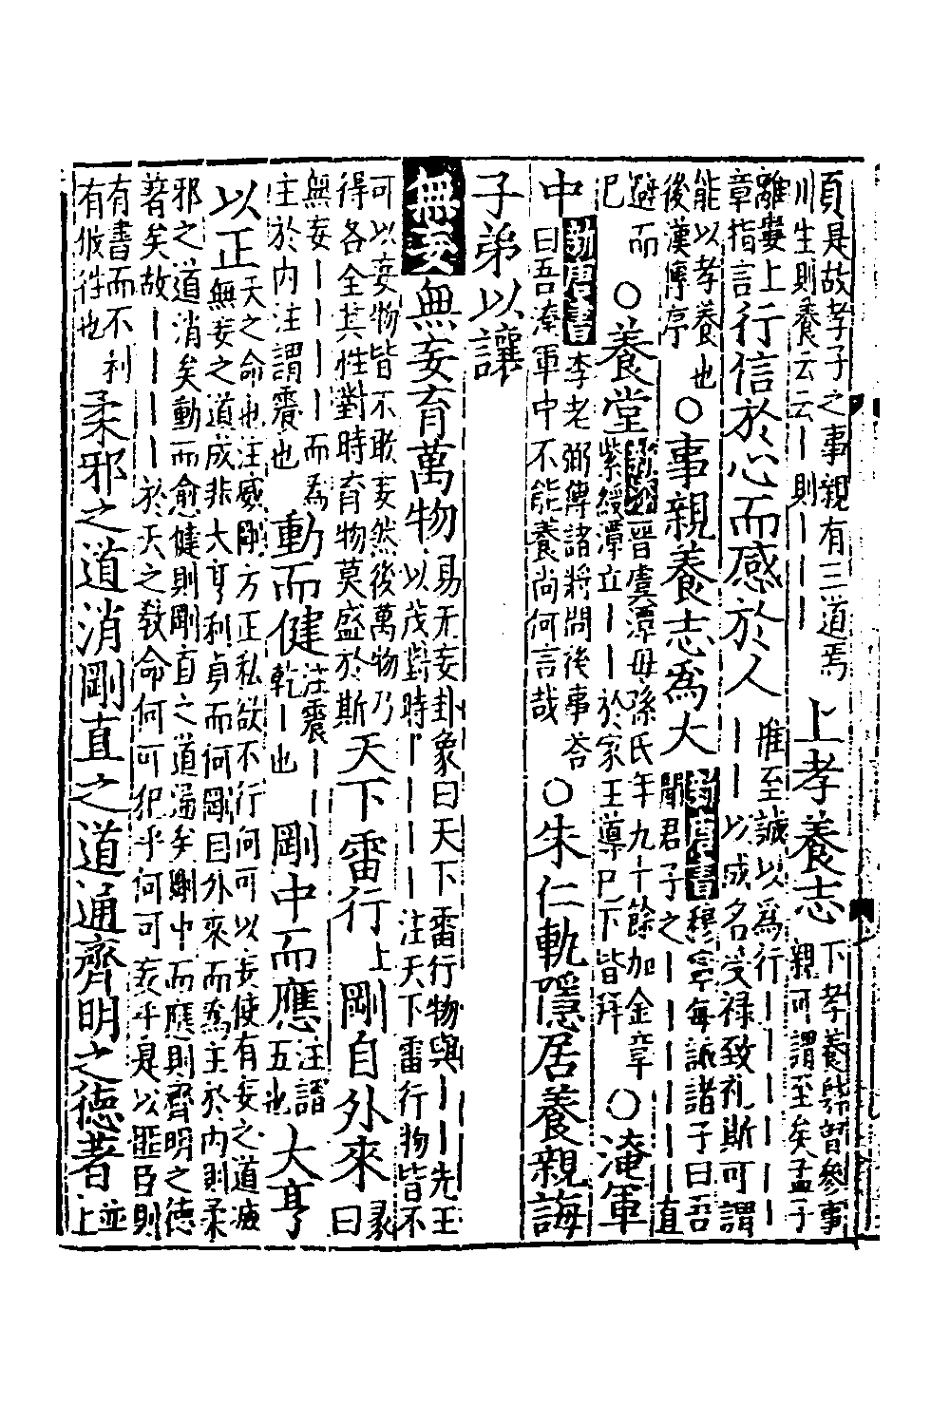 頁是故孝子之事親有三道焉 上孝養志 下孝養體曾參事
川生則養云云丨則丨丨丨 親可謂至矣孟子
離婁上 行信於心而感於人 唯至誠以爲行丨丨丨丨丨丨
章指言 丨丨以成名受祿致礼斯可謂
能以孝養也 ○事親養志爲大 對唐書穆寧每訴諸子曰吾
後漢傳序 聞君子之丨丨丨丨丨丨直
避而 ○養堂 晉虞潭母孫氏年九十餘加金章 ○淹軍
已 紫綬潭立丨丨於家王導已下皆拜
中 對唐書李老弼傳諸將問後事荅 ○朱仁軌隱居養親誨
曰吾淹軍中不能養尚何言哉
子弟以讓
無妄 無妄育萬物 易无妄卦象曰天下雷行物與丨丨先王
以茂對時丨丨丨丨注天下雷行物皆不
可以妄物皆不敢妄然後萬物乃 天下雷行 上 剛自外來 彖
得各全其性對時育物莫盛於斯 曰
無妄丨丨丨丨而爲 動而健 注震丨丨 剛中而應 注謂 大亨
主於内注謂震也 乾丨也 五也
以正 天之命也注威剛方正私欲不行何可以妄使有妄之道滅
無妄之道成非大亨利貞而何剛自外來而爲主於内則柔
邪之道消矣動而愈健則剛直之道通矣剛中而應則齊明之德
著矣故丨丨丨丨於天之敎命何可犯乎何可妄乎是以匪臣則
有書而不利 柔邪之道消剛直之道通齊明之德著 並
有攸往也 上